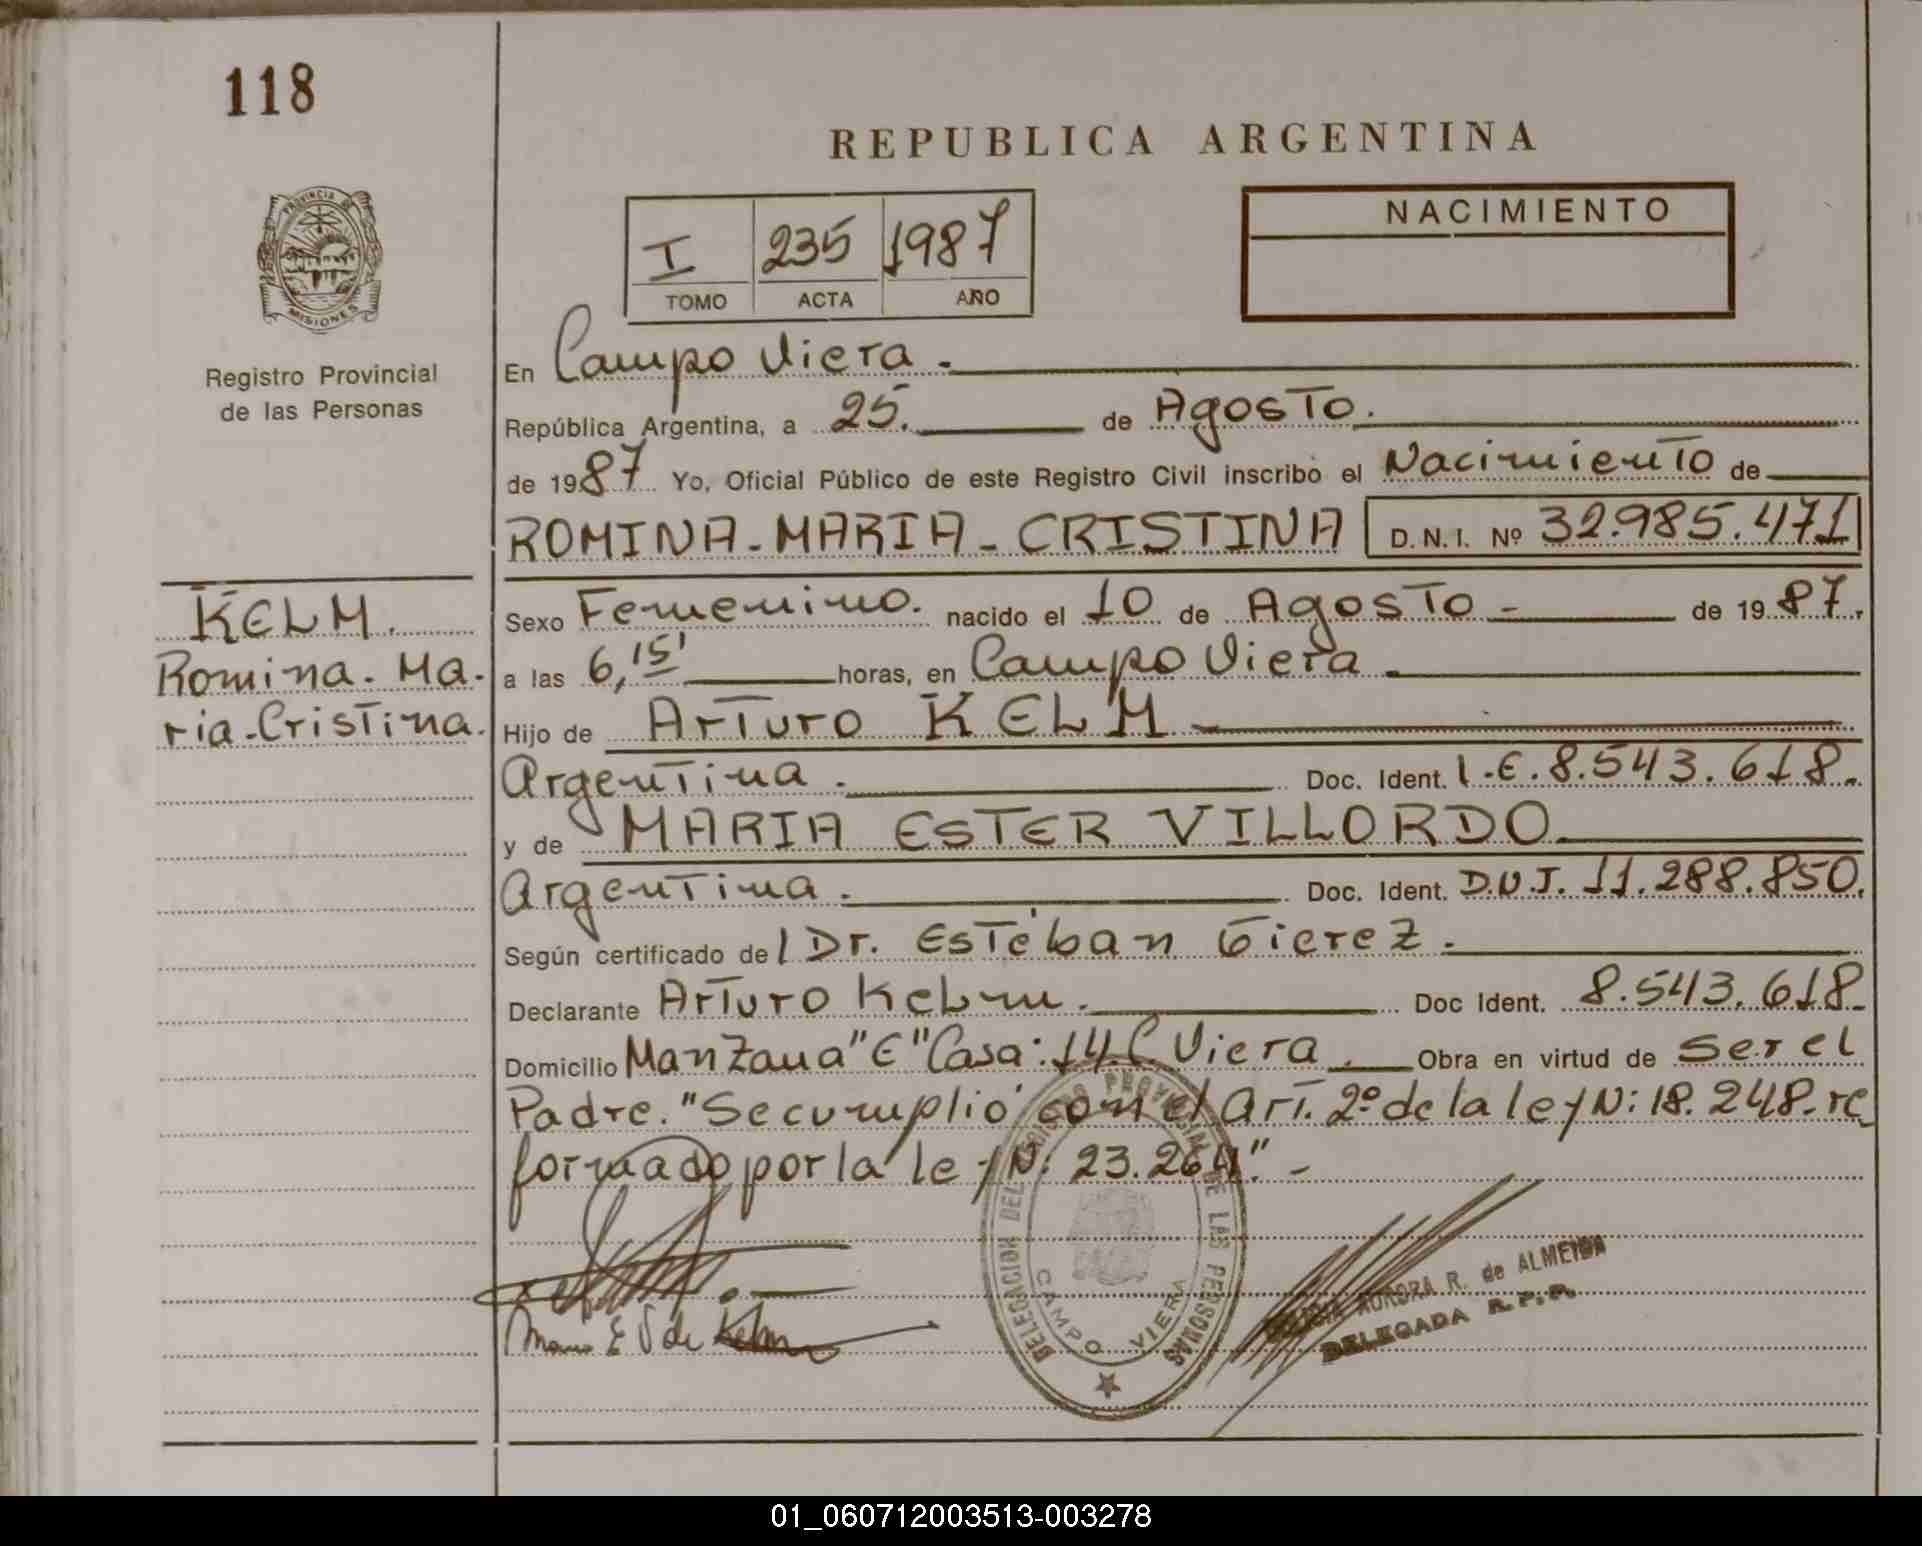 118
REPUBLICA ARGENTINA
PROVINCIA DE
MISIONES
Registro Provincial
de las Personas
I 235 1987
TOMO ACTA AÑO
NACIMIENTO
En Campo Viera.
República Argentina, a 25. de Agosto.
de 1987 Yo, Oficial Público de este Registro Civil inscribo el Nacimiento de
ROMINA-MARIA-CRISTINA D.N.I. Nº 32.985.471
KELM.
Romina. Ma-
ria-Cristina.
Sexo Femenino. nacido el 10 de Agosto - de 1987.
a las 6,15' horas, en Campo Viera
Hijo de Arturo KELM
Argentina. Doc. Ident. L.E. 8.543.618.
y de MARIA ESTER VILLORDO
Argentina. Doc. Ident. D.N.I. 11.288.850.
Según certificado del Dr. Esteban
Declarante Arturo Kelm. Doc Ident. 8.543.618
Domicilio Manzana "E" Casa: 14 C. Viera. Obra en virtud de Ser el
Padre. "Se cumplió con el Art. 2º de la ley N: 18.248. re
formado por la ley N: 23.264." -
DELEGACION DEL REGISTRO PROVINCIAL DE LAS PERSONAS
CAMPO VIERA
AURORA R. de ALMEIDA
DELEGADA R.P.P.
de Kelm
01_060712003513-003278